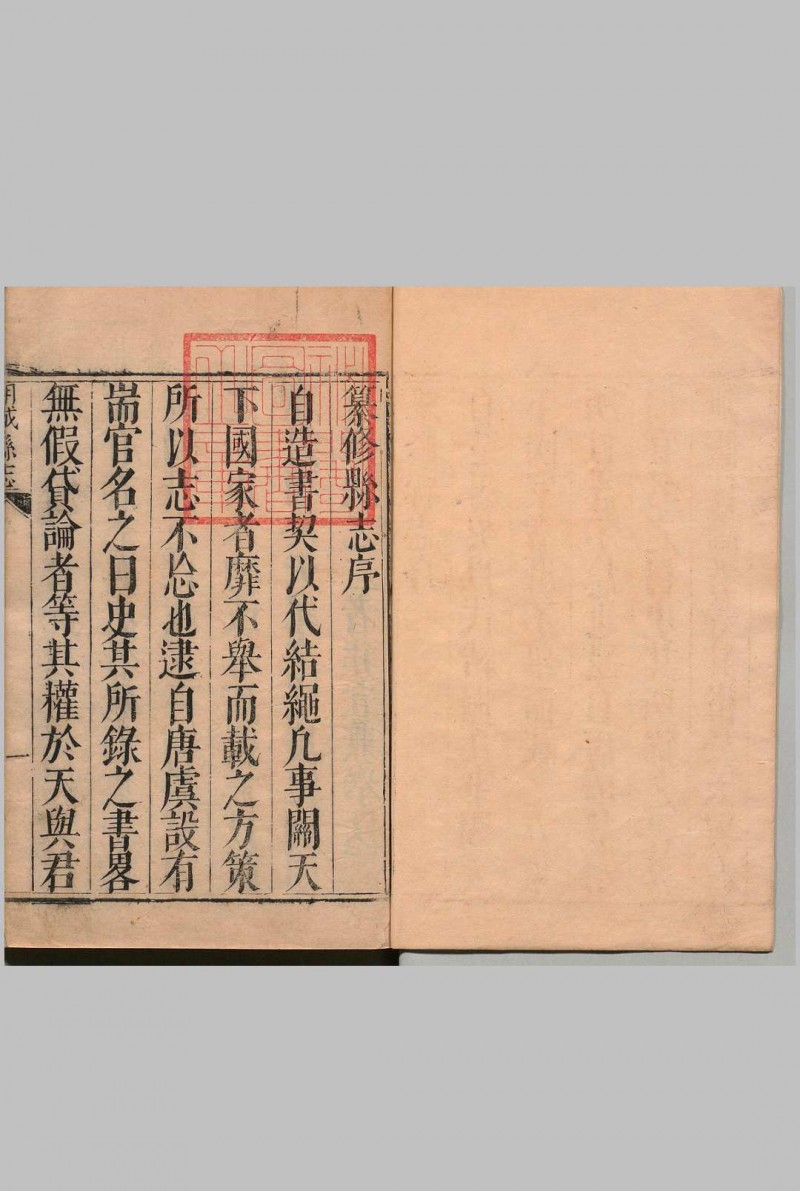 纂修縣志序
自造書契以代結繩凡事關天
下國家者靡不舉而載之方策
所以志不忘也逮自唐虞設有
耑官名之曰史其所錄之書畧
無假貸論者等其權於天與君
縣志
一